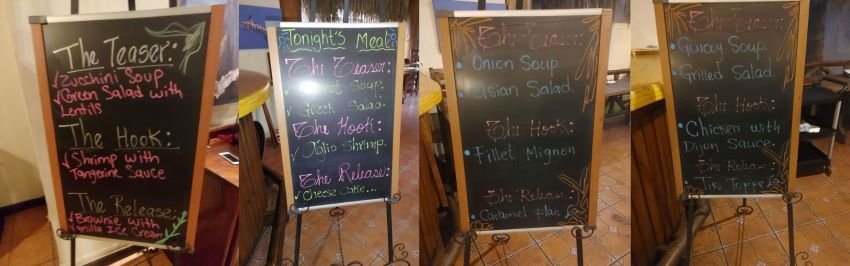 The Teaser:
Zucchini Soup
Green Salad with
Lentils
The Hook:
Shrimp with
Tangerine Sauce
The Release:
Brownie with
Vanilla Ice Cream
Tonight's Meal
The Teaser:
Soup
Greek Salad.
The Hook:
Julio Shrimp.
The Release:
Cheese Cake...
The Teaser:
Onion Soup.
Asian Salad.
The Hook:
Fillet Mignon
The Release:
Caramel Flan
The Teaser:
Quicoy Soup.
Grilled Salad.
The Hook:
Chicken with
Dijon Sauce.
The Release:
Tiki